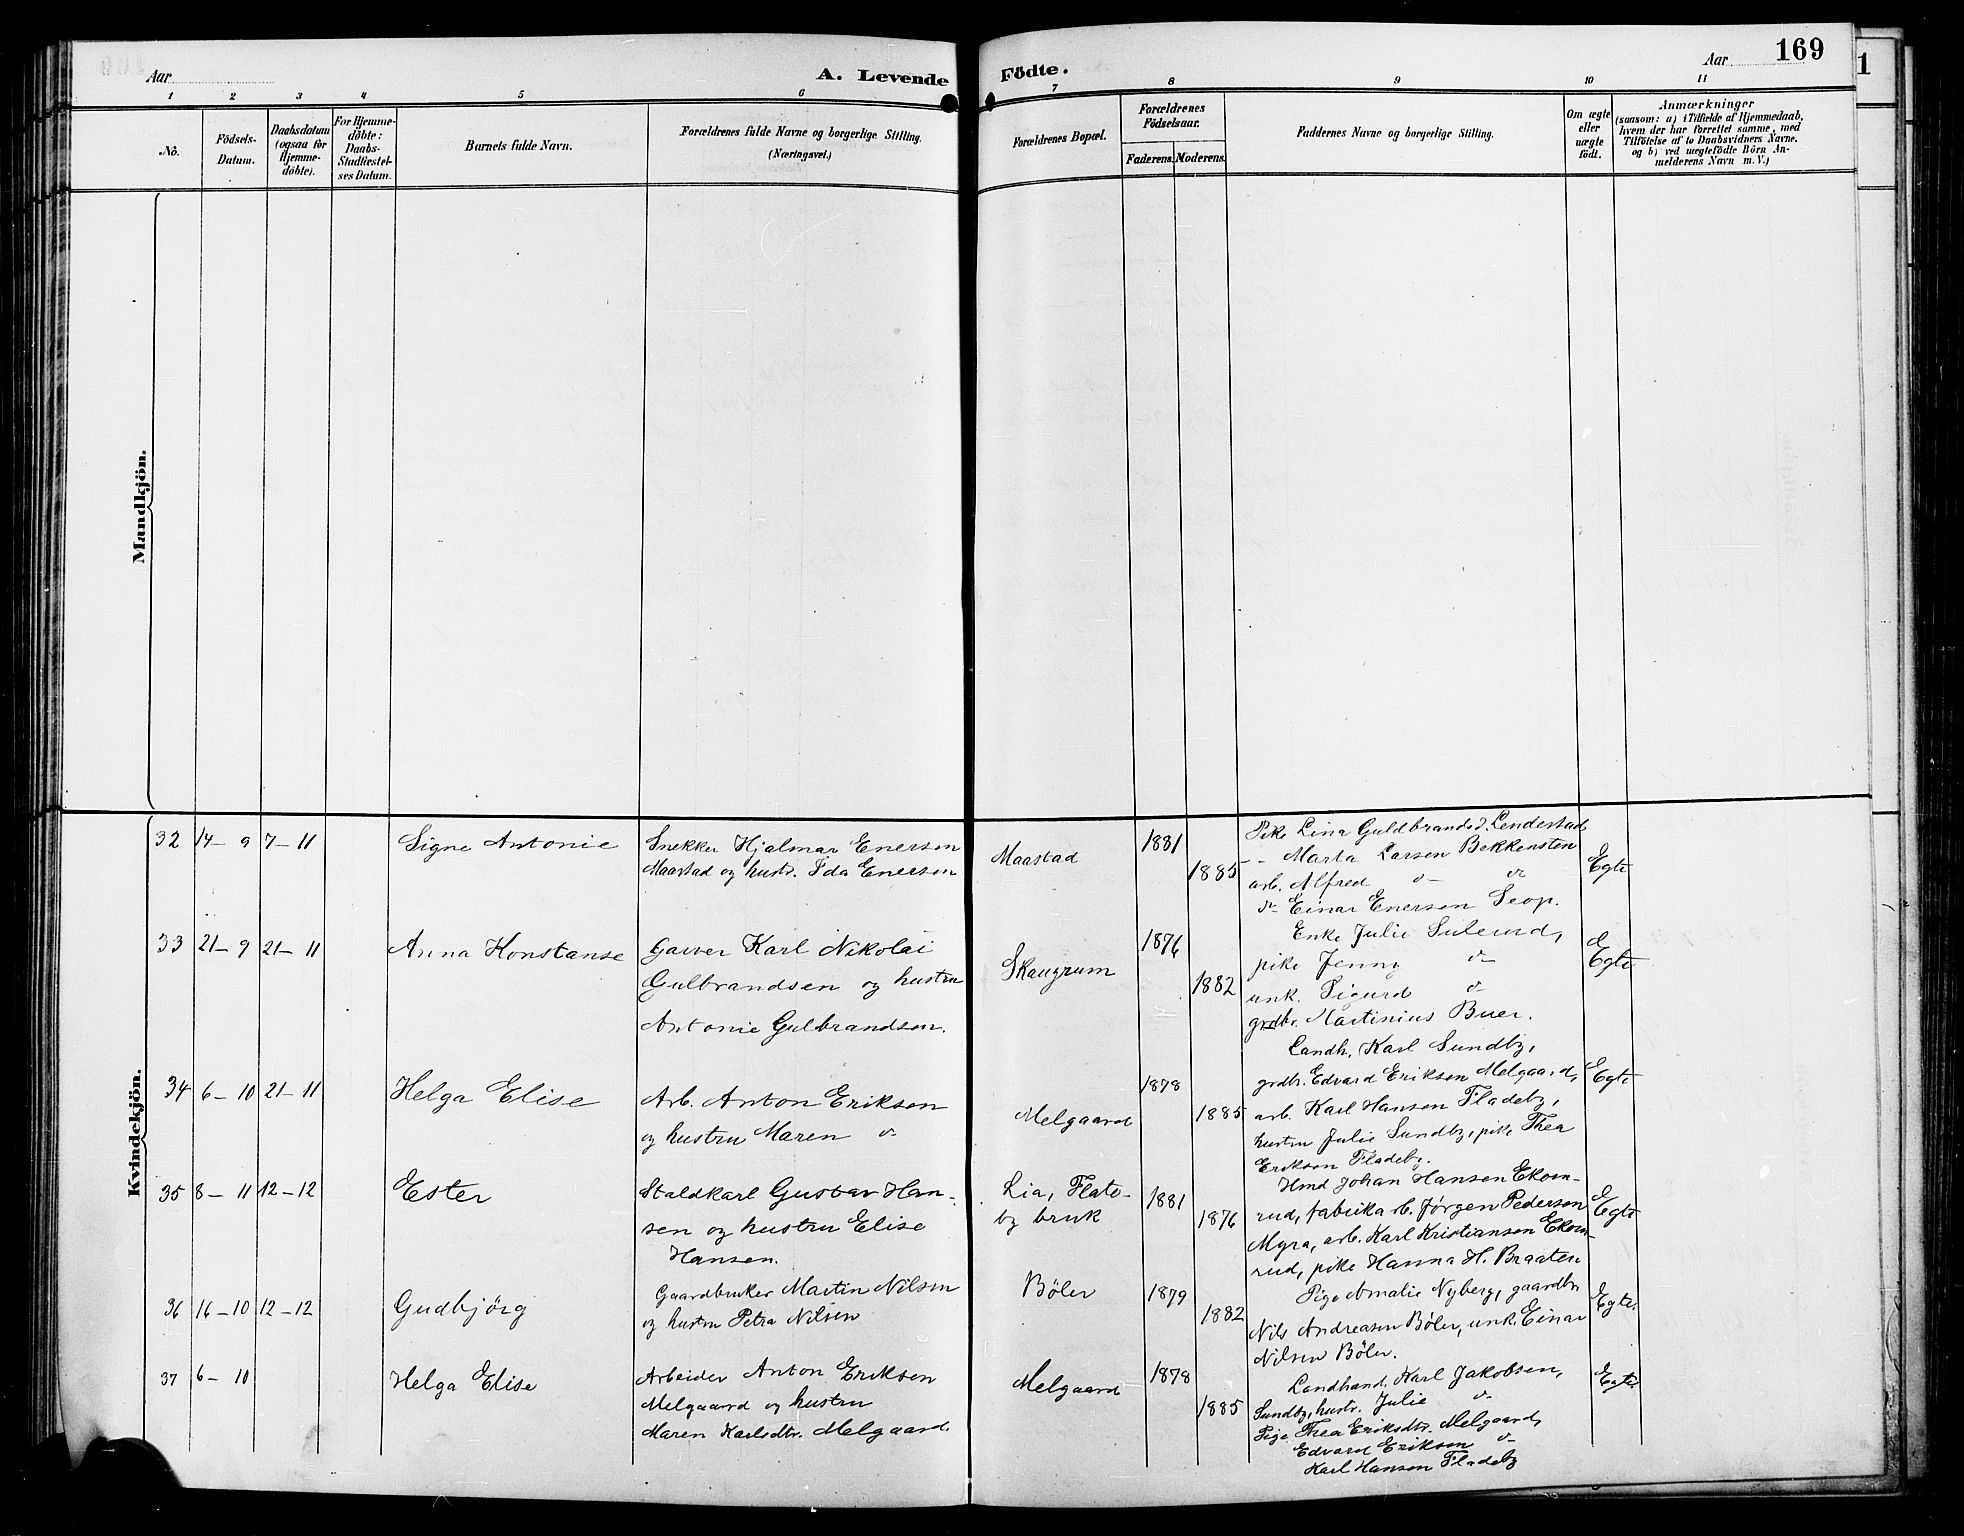 Aar
A. Levende
Födte.
Aar
169
1
1 2 3 4 5 6 7 8 9 10 11
No.
Födsels-
Datum.
Daabsdatum
(ogsaa for
Hjemme-
döbte).
For Hjemme-
döbte:
Daabs-
Stadfæstel-
ses Datum.
Barnets fulde Navn.
Forældrenes fulde Navne og borgerlige Stilling.
(Næringsvei.)
Forældrenes Bopæl.
Forældrenes
Födselsaar.
Faderens. Moderens.
Faddernes Navne og borgerlige Stilling.
Om ægte
eller
uægte
födt.
Anmærkninger
(saasom: a) i Tilfælde af Hjemmedaab,
hvem der har forrettet samme, med
Tilföielse af to Daabsvidners Navne,
og b) ved uægtefödte Börn An-
melderens Navn m. V.)
Mandkjön.
Kvindekjön.
32 14 - 9 7 - 11 Signe Antonie
Snekker Hjalmar Enersen
Maastad og hustr. Ida Enersen
Maastad
1881
1885
Pike Lina Guldbrandsd. Lendestad
- - Marta Larsen Bekkensten
arb. Alfred do do
do Einar Enersen Seop.
Egte
33 21 - 9 21 - 11 Anna Konstanse
Garver Karl Nikolai
Gulbrandsen og hustru
Antonie Gulbrandsen.
Skaugrum
1876
1882
Enke Julie Sulerud,
pike Jenny do
unk. Sigurd do
grdbr. Martinius Buer.
Egte
34 6 - 10 21 - 11 Helga Elise
Arb. Anton Eriksen
og hustru Maren do
Melgaard
1878
1885
Landh. Karl Sundby,
grdbr. Edvard Eriksen Melgaard,
arb. Karl Hansen Fladeby,
hustru Julie Sundby, pike Thea
Eriksen Fladeby.
Egte
35 8 - 11 12 - 12 Ester
Staldkarl Gustav Han-
sen og hustru Elise
Hansen.
Lia, Flate-
by bruk
1881
1876
Hmd Johan Hansen Ekorn-
rud, fabrikarb. Jørgen Pedersen
Myra, arb. Karl Kristiansen Ekorn-
rud, pike Hanna H. Braaten
Egte
36 16 - 10 12 - 12 Gudbjörg
Gaardbruker Martin Nilsen
og hustru Petra Nilsen
Böler
1879
1882
Pige Amalie Nyberg, gaardbr.
Nils Andreasen Böler, unk. Einar
Nilsen Böler.
Egte.
37 6 - 10 Helga Elise
Arbeider Anton Eriksen
Melgaard og hustru
Maren Karlsdtr. Melgaard.
Melgaard
1878
1885
Landhand. Karl Jakobsen,
Sundby, hustr. Julie do
Pige Thea Eriksdtr. Melgaard,
Edvard Eriksen do
Karl Hansen Fladeby
Egte.